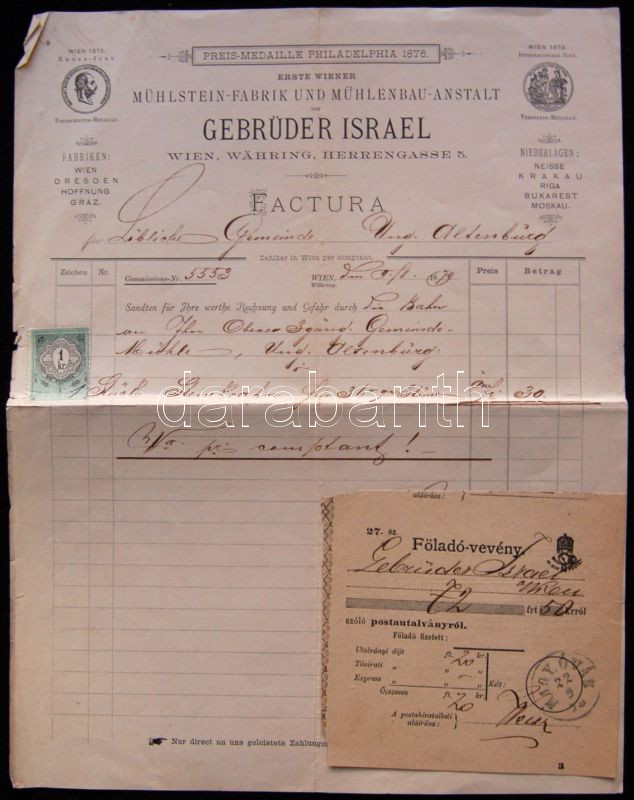 PREIS-MEDAILLE PHILADELPHIA 1876.
WIEN 1873.
FORTSCHRITTS-MEDAILLE.
WIEN 1873.
INTERNATIONALE JURY.
VERDIENST-MEDAILLE.
ERSTE WIENER
MÜHLSTEIN-FABRIK UND MÜHLENBAU-ANSTALT
VON
GEBRÜDER ISRAEL
WIEN, WÄHRING, HERRENGASSE 5.
FABRIKEN:
WIEN
DRESDEN
HOFFNUNG
GRAZ.
NIEDERLAGEN:
NEISSE
KRAKAU
RIGA
BUKAREST
MOSKAU.
FACTURA
für Löbliche Gemeinde, Ung. Altenburg
Zahlbar in Wien per comptant.
Zeichen Nr. Commissions-Nr. 5553 WIEN, Währing, den 1879 Preis Betrag
Sandten für Ihre werthe Rechnung und Gefahr durch die Bahn
an Ihre Gemeinde-
Mühle, Ung. Altenburg:
1 Stück 30
pr comptant!
1 kr.
darabanth
aláirása:
27. sz.
Föladó-vevény
Gebrüder Israel
Wien
72 frt 50 krról
szóló postautalványról.
Föladó fizetett:
Utalványi díjt ft. 20 kr.
Távirati " " "
Express " " - "
Összesen ft. 20 kr.
Kelt:
A postahivatalbeli
aláirása:
3
Nur direct an uns geleistete Zahlungen